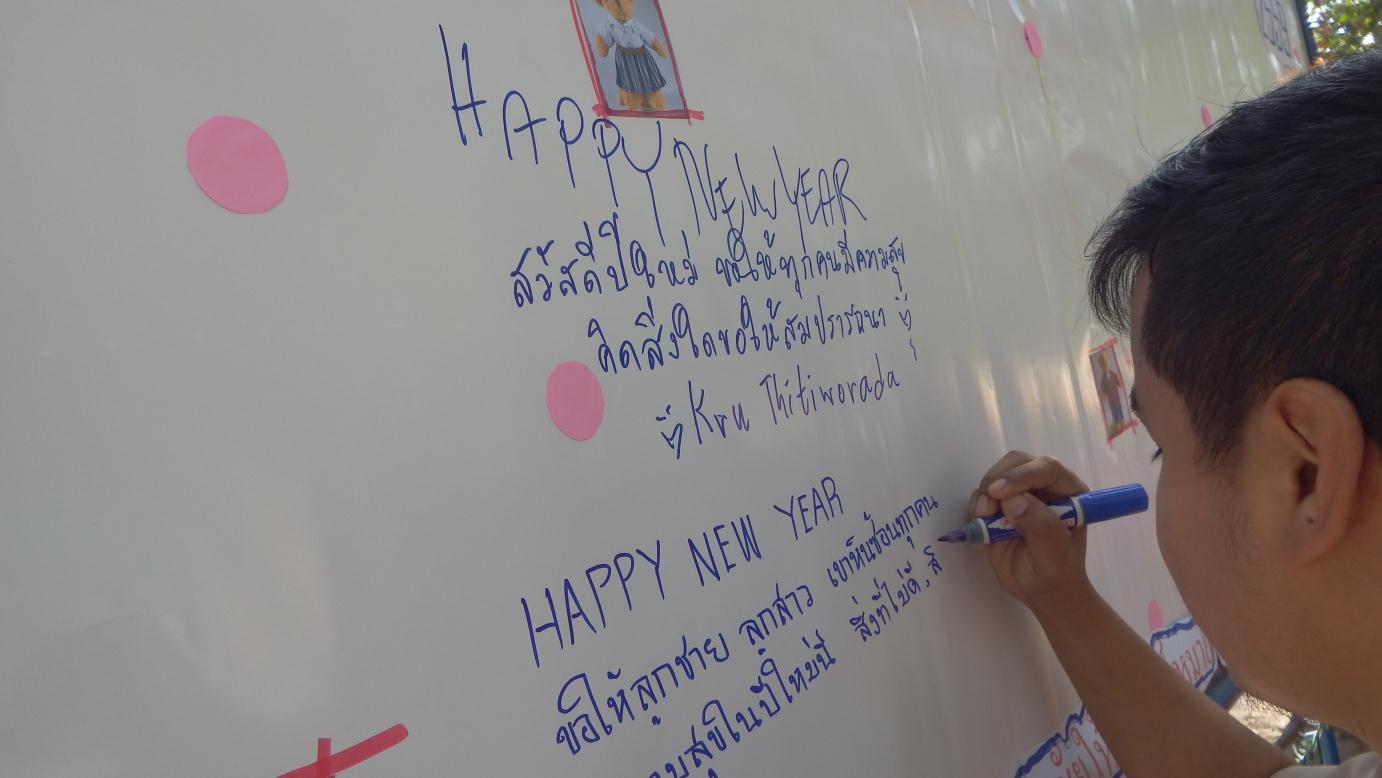 HAPPY NEW YEAR
สวัสดีปีใหม่ ขอให้ทุกคนมีความสุข
คิดสิ่งใดขอให้สมปรารถนา
Kru Thitiworada
HAPPY NEW YEAR
ขอให้ลูกชาย ลูกสาว เขาหินซ้อนทุกคน
สุขในปีใหม่นี้ สิ่งที่ไม่ดี, สิ